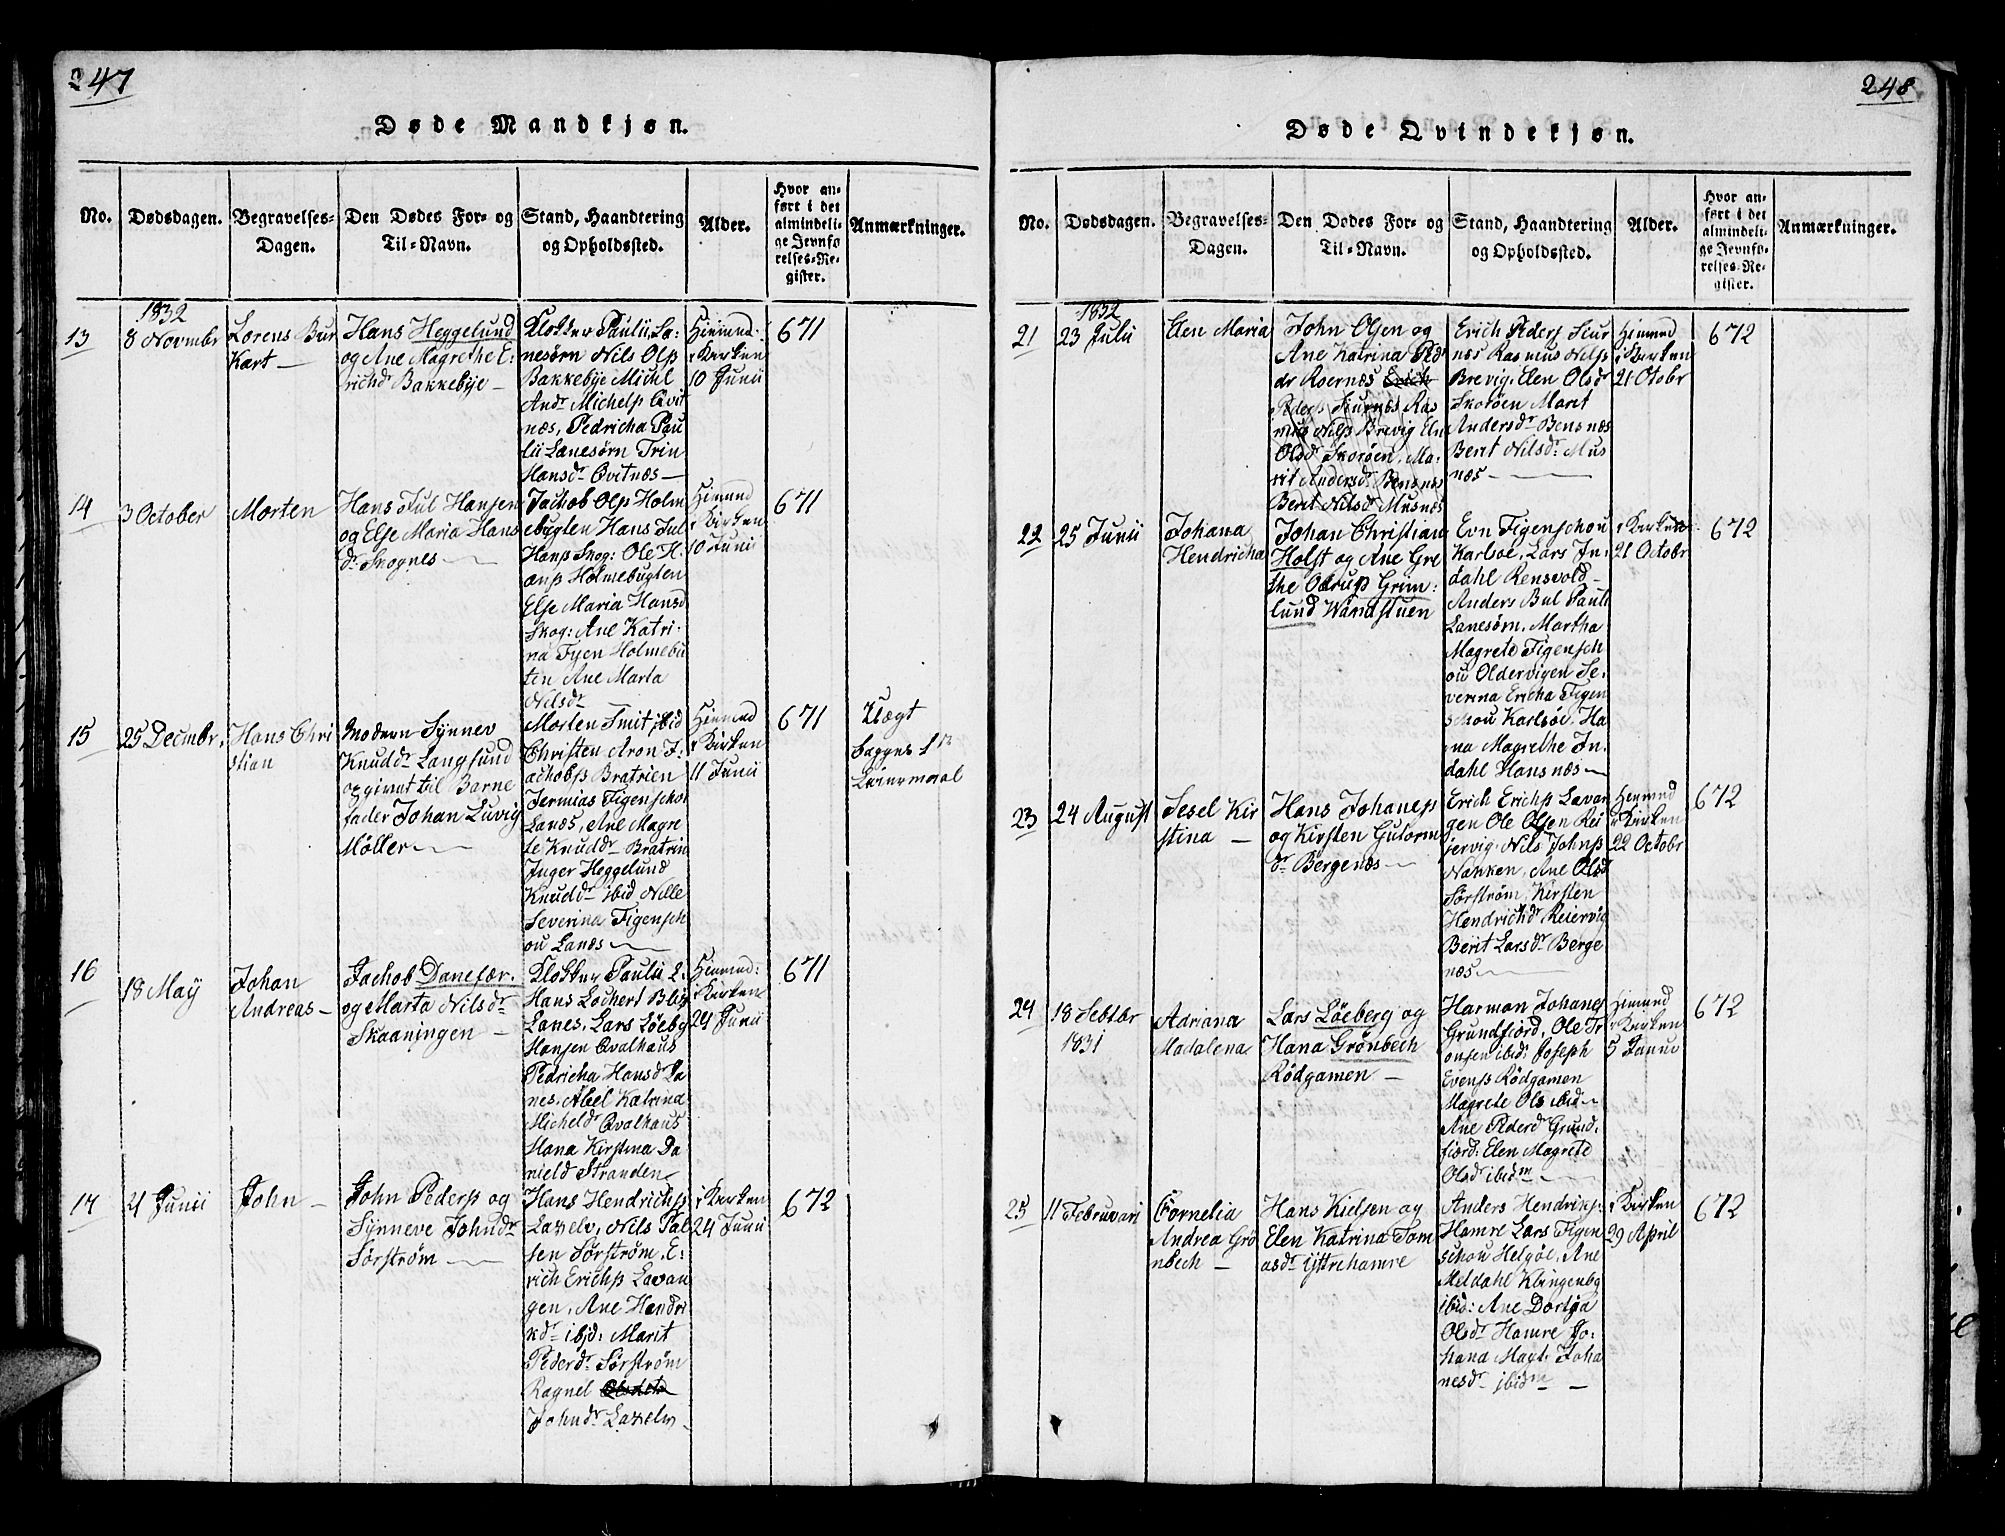 247
Døde Mandkjøn.
No.
Dødsdagen.
Begravelses-
Dagen.
Den Dødes For- og
Til-Navn.
Stand, Haandtering
og Opholdssted.
Alder.
Hvor an-
ført i det
almindeli-
ge Jevnfø
relses-Re-
gister.
Anmærkninger.
1832
13
8 Novmbr
Lorens Bur
Kart —
Hans Heggelund
og Ane Magrethe E-
richdr Bakkebye —
Klokker Paulii, La-
nesørn Nils Ols
Bakkebye Michl
Andr Michels Qvit
næs, Pedricha Pau
lii Lanesørn Trin
Hansdr Qvitnæs —
Hiemed.
i Kirken
10 Junii
671
14
3 October
Morten
Hans Jul Hansen
og Else Maria Hans
dr Skognes —
Jachob Ols Holm
ebugten Hans Jul
Hans Skog: Ole H.
ans Holmebugten
Else Maria Hansd
Skog: Ane Katri-
na Fyen Holmebu
ten Ane Marta
Nilsdr —
Hiemed
i Kirken
10 Junii
671
15
25 Decmbr.
Hans Chri
stian
Modern Synnev
Knuddr Langsund
opgivet til Barne
fader Johan Luvig
Møller —
Morten Smit ibid
Christen Aron J.
achobs Bratrien
Jermias Figenschou
Lanæs, Ane Magre
te Knuddr Bratrin
Inger Heggelund
Knuddr ibid Nille
Severina Figensch
ou Lanæs —
Hiemed
i Kirken
11 Junii
671
Uægt
begges 1ste
Leiermaal
16
18 May
Johan
Andreas —
Jachob Danefær.
og Marta Nilsdr
Skaaningen —
Klokker Paulii L.
Hans Lochert Blix
Lanes, Lars Löeby
Hansen Qvalhaus
Pedricha Hansd La
nes, Abel Katrina
Micheldr Qvalhaus
Hana Kirstina Da
nield Stranden
Hiemed:
i Kirken
24 Junii
671
17
21 Junii
John —
John Peders og
Synneve Johndr
Sørstrøm —
Hans Hendrichs
Laxelv, Nils Pal
sen Sørstrøm, E-
rich Erichs Lavan
gen, Ane Hendri
kdr ibid: Marit
Pederdr Sørstrøm
Ragnel
Johndr Laxelv —
i Kirken
24 Junii
672
248
Døde Qvindekjøn.
No.
Dødsdagen.
Begravelses-
Dagen.
Den Dødes For- og
Til-Navn.
Stand, Haandtering
og Opholdssted.
Alder.
Hvor an-
ført i det
almindeli-
ge Jevnfø-
relses-Re-
gister.
Anmærkninger.
1832
21
23 Julii
Elen Maria
John Olsen og
Ane Katrina Ped
dr Roernæs Erich
Peders Skurnæs Ras
mus Nils Brevig Eln
Olsdr Skorøen, Ma-
rit Andersdr Bensnæs
Berit Nilsdr Musnæs
Erich Peders Skur
næs Rasmus Nils
Brevig, Elen Olsdr
Skorøen Marit
Andersdr Bensnæs
Berit Nilsdr: Mus
næs —
Hiemed
i Kirken
21 Octobr
672
22
25 Junii
Johana
Hendricha
Johan Christian
Holst og Ane Gre
the Grim-
lund Wandstuen
Evn Figenschou
Karlsøe, Lars In-
dahl Rensvold —
Anders Bul Pauli
Lanesørn, Martha
Magrete Figensch
ou Oldervigen Se-
verina Ericha Figen
schou Karlsøe, Ha
na Magrethe In-
dahl Hansnæs —
i Kirken
21 Octobr
672
23
24 August
Sesel Kir
stina —
Hans Johanes
og Kirsten Gutorm
dr Bergenæs —
Erich Erichs Lavan
gen Ole Olsen Rei
jervig, Nils Johns
Nakken, Ane Olsd
Sørstrøm, Kirsten
Hendrichdr Reiervig
Berit Larsdr Berge
næs —
Hiemed
i Kirken
22 Octobr
672
24
18 Sebtbr
1831
Adriana
Madalena
Lars Löeberg og
Hana Grønbech
Rödgamen —
Harman Johanes
Grundfiord, Ole Tr
onsen ibid: Joseph
Evens Rödgamen
Magrete Ols ibid —
Ane Pederd Grund,
fiord: Elen Magrete
Olsdr ibidm —
Hiemed
i Kirken
5 Januar
672
25
11 Februari
Cornelia
Andrea Grö
nbech —
Hans Kielsen og
Elen Katrina Tom
asdr Yttrehamre
Anders Hendriks:
Hamre Lars Figen
schou Helgöe, Ane
Meldahl Klingenbg
ibid: Ane Dortea
Olsdr Hamre Jo-
hana Magt: Joha
nesdr ibidm —
i Kirken
29 April
672